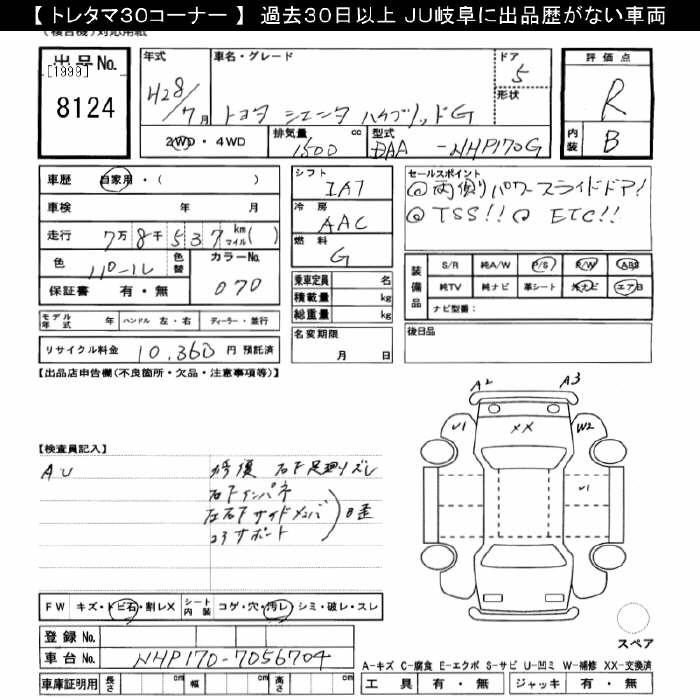 【 トレタマ30コーナー 】 過去30日以上 JU岐阜に出品歴がない車両
出品No. [1999] 8124
年式 H28/7月
車名・グレード トヨタ シエンタ ハイブリッドG
ドア 5
形状
評価点 R
内装 B
2WD・4WD
排気量 cc 1500
型式 DAA -NHP170G
車歴 自家用・( )
車検 年 月
走行 7万 8千 5 3 7 km マイル( )
色 パール 色替 カラーNo. 070
保証書 有・無
モデル年式 年 ハンドル 左・右 ディーラー・並行
リサイクル料金 10,360 円 預託済
シフト IAT
冷房 AAC
燃料 G
乗車定員 名
積載量 kg
総重量 kg
名変期限 月 日
セールスポイント
◎両側パワースライドドア!
◎TSS!! ◎ ETC!!
装備品 S/R 純A/W P/S P/W ABS
純TV 純ナビ 革シート 社ナビ エアB
ナビ型番:
後日品
【出品店申告欄(不良箇所・欠品・注意事項等)】
【検査員記入】
AU
修復 右F足廻りズレ
右Fインパネ
左右Fサイドメンバ
コアサポート
B歪
A2 A3
U1 XX W2
U1
スペア
FW キズ・トビ石・割レX シート内装 コゲ・穴・汚レ・シミ・破レ・スレ
登録 No.
車台 No. NHP170-7056704
車庫証明用 長さ cm 幅 cm 高さ cm
A-キズ C-腐食 E-エクボ S-サビ U-凹ミ W-補修 XX-交換済
工具 有・無 ジャッキ 有・無